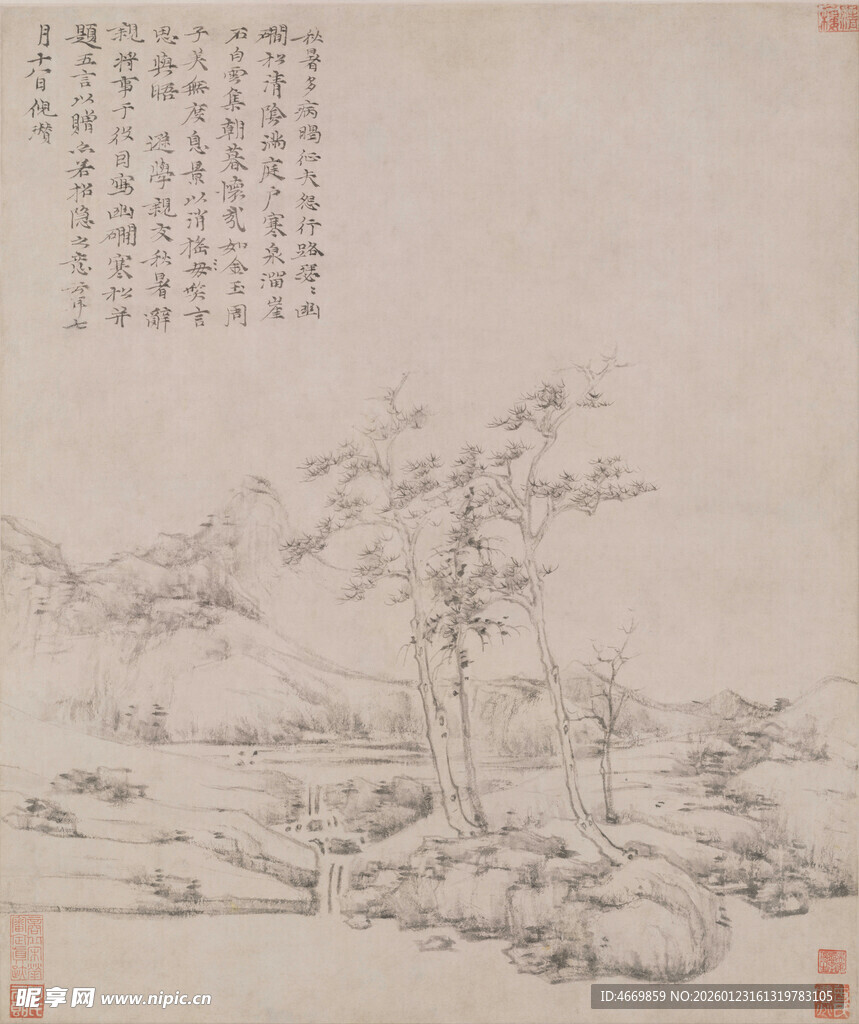 秋暑多病暍征夫怨行路瑟〻幽
磵松清陰滿庭戶寒泉溜崖
石白雲集朝暮懷哉如金玉周
子美無度息景以消搖毋嗟言
思與晤 遜學親友秋暑辭
親將事于役因寫幽磵寒松并
題五言以贈亦若招隱之意云耳七
月十八日倪瓚
昵享网 www.nipic.cn
ID:4669859 NO:20260123161319783105